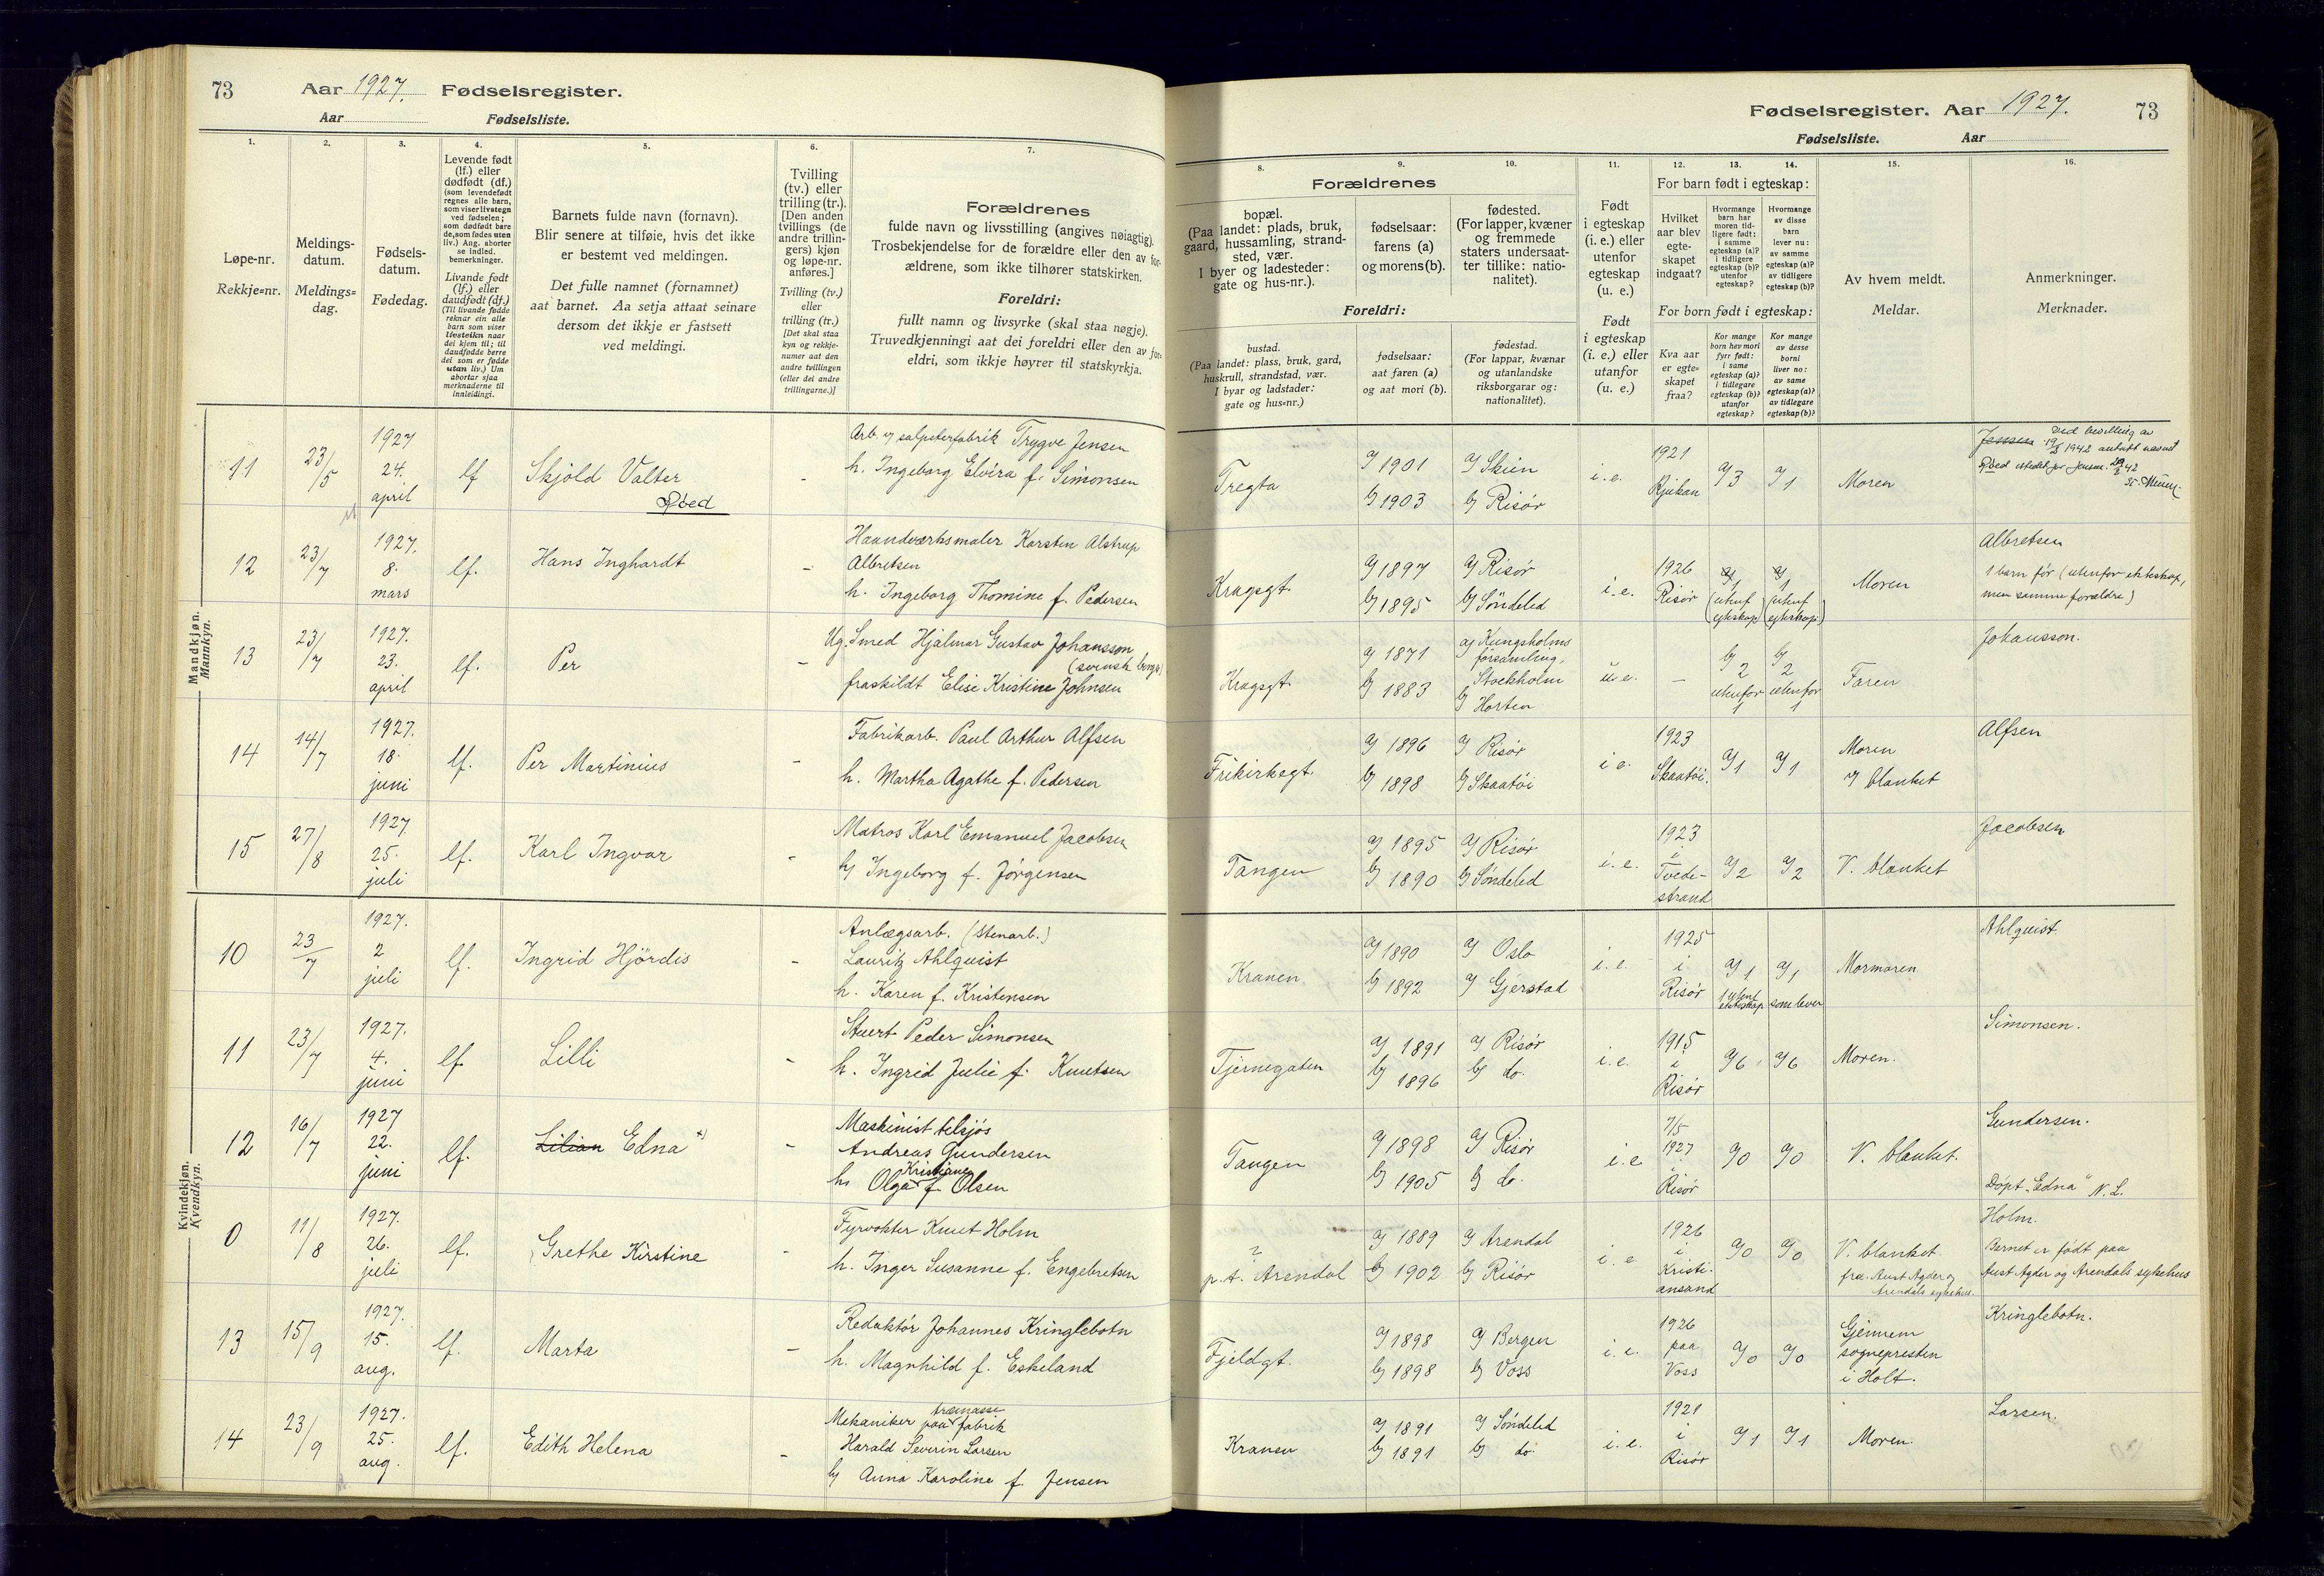 73 Aar 1927. Fødselsregister.
Aar Fødselsliste.
1.
2.
3.
4.
5.
6.
7.
Løpe-nr.
Rekkje=nr.
Meldings-
datum.
Meldings=
dag.
Fødsels-
datum.
Fødedag.
Levende født
(lf.) eller
dødfødt (df.)
(som levendefødt
regnes alle barn,
som viser livstegn
ved fødselen;
som dødfødt bare
de, som fødes uten
liv.) Ang. aborter
se indled.
bemerkninger.
Livande født
(lf.) eller
daudfødt (df.)
(Til livande fødde
reknar ein alle
barn som viser
livsteikn naar
dei kjem til; til
daudfødde berre
dei som er fødde
utan liv.) Um
abortar sjaa
merknaderne til
innleidingi.
Barnets fulde navn (fornavn).
Blir senere at tilføie, hvis det ikke
er bestemt ved meldingen.
Det fulle namnet (fornamnet)
aat barnet. Aa setja attaat seinare
dersom det ikkje er fastsett
ved meldingi.
Tvilling
(tv.) eller
trilling (tr.).
[Den anden
tvillings (de
andre trillin-
gers) kjøn
og løpe-nr.
anføres.]
Tvilling (tv.)
eller
trilling (tr.)
[Det skal staa
kyn og rekkje-
numer aat den
andre tvillingen
(eller dei andre
trillingarne.)]
Forældrenes
fulde navn og livsstilling (angives nøiagtig).
Trosbekjendelse for de forældre eller den av for-
ældrene, som ikke tilhører statskirken.
Foreldri:
fullt namn og livsyrke (skal staa nøgje).
Truvedkjenningi aat dei foreldri eller den av for-
eldri, som ikkje høyrer til statskyrkja.
Mandkjøn.
Mannkyn.
11 23/5 1927 24. april lf Skjold Valter Røed -
Arb. v salpeterfabrik Trygve Jensen
h. Ingeborg Elvira f. Simonsen
12 23/7 1927. 8. mars lf. Hans Inghardt -
Haandverksmaler Karsten Alstrup
Albretsen
h. Ingeborg Thomine f. Pedersen
13 23/7 1927. 23. april lf. Per -
Ug. Smed Hjalmar Gustav Johansson
(svensk borger)
fraskildt Elise Kristine Johnsen
14 14/7 1927. 18. juni lf. Per Martinius -
Fabrikarb. Paul Arthur Alfsen
h. Martha Agathe f. Pedersen
15 27/8 1927. 25. juli lf. Karl Ingvar -
Matros Karl Emanuel Jacobsen
b/ Ingeborg f. Jørgensen
Kvindekjøn.
Kvendkyn.
10 23/7 1927. 2 juli lf. Ingrid Hjördis -
Anlægsarb. (stenarb.)
Lauritz Ahlquist
h. Karen f. Kristensen
11 23/7 1927. 4. juni lf. Lilli -
Stuert Peder Simonsen
h. Ingrid Julie f. Knutsen
12 16/7 1927 22. juni lf. Lilian Edna +) -
Maskinist tilsjøs
Andreas Gundersen
Kristiane
h. Olga f. Olsen
0 11/8 1927. 26. juli lf. Grethe Kirstine -
Fyrvokter Knut Holm
h. Inger Susanne f. Engebretsen
13 15/9 1927. 15. aug. lf. Marta -
Redaktør Johannes Kringlebotn
h. Magnhild f. Eskeland
14 23/9 1927. 25. aug. lf. Edith Helena -
træmasse
Mekaniker paa fabrik
Harald Severin Larsen
b/ Anna Karoline f. Jensen
Fødselsregister. Aar 1927. 73
Fødselsliste. Aar
8.
9.
10.
11.
12.
13.
14.
15.
16.
Forældrenes
bopæl.
(Paa landet: plads, bruk,
gaard, hussamling, strand-
sted, vær.
I byer og ladesteder:
gate og hus-nr.).
fødselsaar:
farens (a)
og morens (b).
fødested.
(For lapper, kvæner
og fremmede
staters undersaat-
ter tillike: natio-
nalitet).
Foreldri:
bustad.
(Paa landet: plass, bruk, gard,
huskrull, strandstad, vær.
I byar og ladstader:
gate og hus=nr.)
fødselsaar:
aat faren (a)
og aat mori (b).
fødestad.
(For lappar, kvænar
og utanlandske
riksborgarar og:
nationalitet).
Født
i egteskap
(i. e.) eller
utenfor
egteskap
(u. e.)
Født
i egteskap
(i. e.) eller
utanfor
(u. e.)
For barn født i egteskap:
Hvilket
aar blev
egte-
skapet
indgaat?
Hvormange
barn har
moren tid-
ligere født:
i samme
egteskap (a)?
i tidligere
egteskap (b)?
utenfor
egteskap?
Hvormange
av disse
barn
lever nu:
av samme
egteskap (a)?
av tidligere
egteskap (b)?
For born født i egteskap:
Kva aar
er egte=
skapet
fraa?
Kor mange
born hev mori
fyrr født:
i same
egteskap (a)?
i tidlegare
egteskap (b)?
utanfor
egteskap?
Kor mange
av desse
borni
liver no:
av same
egteskap (a)?
av tidlegare
egteskap (b)?
Av hvem meldt.
Meldar.
Anmerkninger.
Merknader.
Tregta a/ 1901 b/ 1903 a/ Skien b/ Risør i. e. 1921 Rjukan a/ 3 a/ 1 Moren
Jensen Ved bevilling av
19/5 1942 antatt navnet
Røed istedet for Jensen.
Kragsgt. a/ 1897 b/ 1895 a/ Risør b/ Söndeled i. e. 1926 Risør 1 (utenf egteskap) 1 (utenf egteskap) Moren
Albretsen
1 barn før (utenfor ekteskap,
men samme forældre)
Kragsgt. a/ 1871 b/ 1883 a/ Kungsholms
församling,
Stockholm
b/ Horten u. e. - b/ 2 utenfor 1 b/ 2 utenfor 1 Faren Johansson.
Frikirkegt. a/ 1896 b/ 1898 a/ Risør b/ Skaatøi i e. 1923 Skaatøi. a/ 1 a/ 1 Moren
v blanket Alfsen
Tangen a/ 1895 b/ 1890 a/ Risør b/ Söndeled i. e. 1923 i Tvede-
strand a/ 2 a/ 2 V. blanket Jacobsen
Kranen a/ 1890 b/ 1892 a/ Oslo a/ Gjerstad i. e. 1925 i Risør a/ 1 1 utenf ekteskap a/ 1 som lever Mormoren Ahlquist.
Tjernegaten a/ 1891 b/ 1896 a/ Risør b/ do. i. e. 1915 i Risør a/ 6 a/ 6 Moren. Simonsen.
Tangen a/ 1898 b/ 1905 a/ Risør b/ do. i. e. 7/5 1927 i Risør a/ 0 a/ 0 V. blanket. Gundersen.
Döpt "Edna" N. L.
?
p. t. Arendal a/ 1889 b/ 1902 a/ Arendal b/ Risör i. e 1926 i Kristi-
ansand a/ 0 a/ 0 V. blanket.
fra Aust Agder og
Arendals sykehus.
Holm.
Barnet er født paa
Aust Agder og Arendals sykehus
Fjeldgt. a/ 1898 b/ 1898 a/ Bergen b/ Voss i. e. 1926 paa Voss a/ 0 a/ 0 Gjennem
sognepresten
i Holt. Kringlebotn.
Kranen a/ 1891 b/ 1891 a/ Söndeled b/ do. i. e. 1921 i Risør a/ 1 a/ 1 Moren. Larsen.